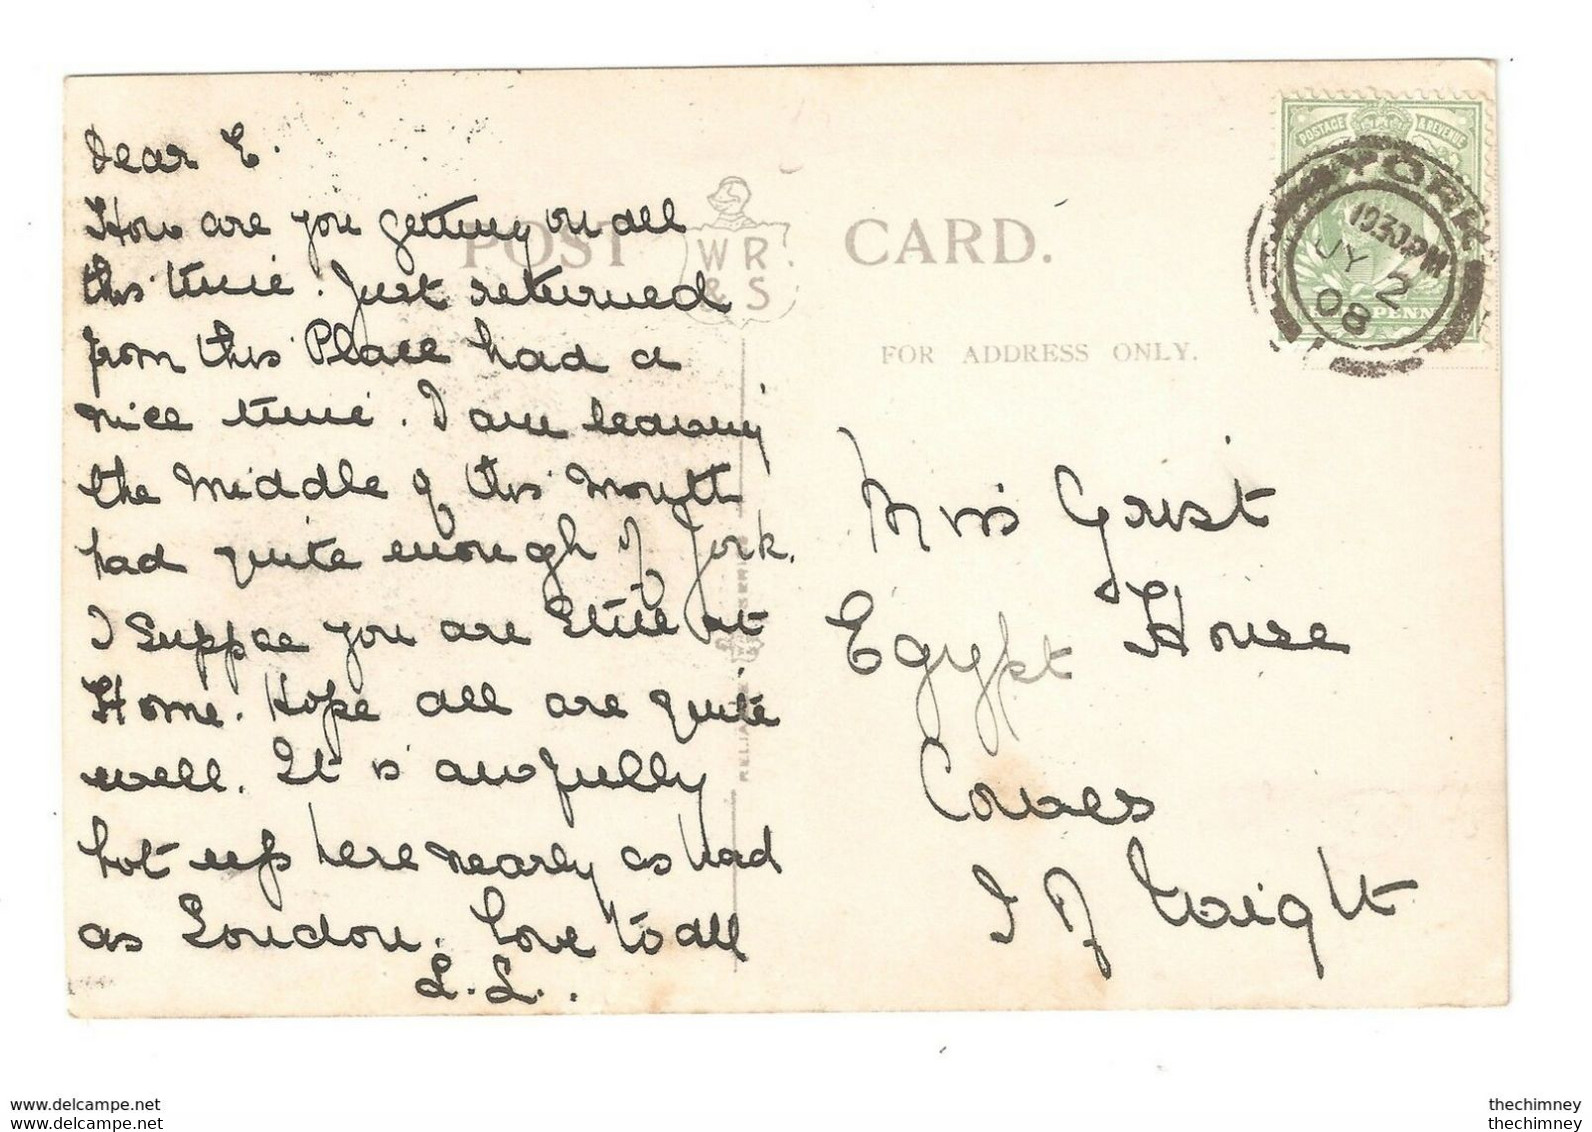 Dear E.
How are you getting on all
this time. Just returned
from this Place had a
nice time. I am leaving
the Middle of this Month
had quite enough of York.
I suppose you are still at
Home. Hope all are quite
well. It is awfully
hot up here nearly as bad
as London. Love to all
L.L..
POST CARD.
WR
& S
FOR ADDRESS ONLY.
POSTAGE & REVENUE
YORK
JY 2
08
Miss Grist
Egypt House
Cowes
I of Waight
www.delcampe.net
www.delcampe.net
thechimney
thechimney